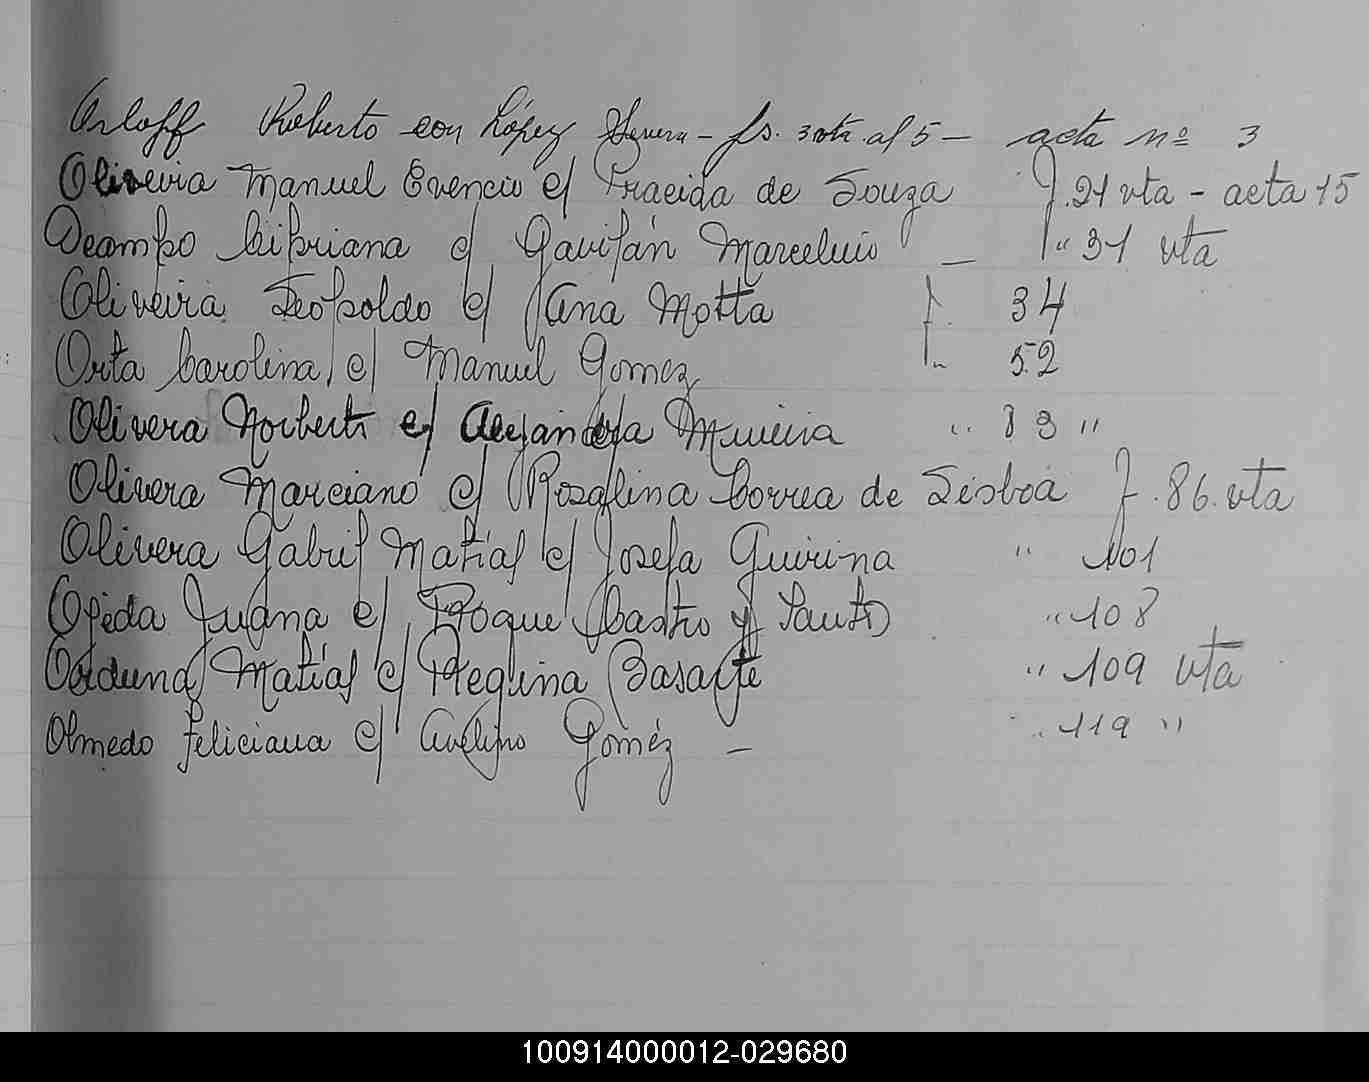 Orloff Roberto con López Severa - fs. 3 vta. al 5 - acta nº 3
Oliveira Manuel Evencio c/ Pracida de Souza f. 21 vta - acta 15
Ocampo Cipriana c/ Gavilán Marcelino - " 31 vta
Oliveira Leopoldo c/ Ana Motta f. 34
Orta Carolina c/ Manuel Gomez " 52
Olivera Norberto c/ Alejandra Mureira " 83 "
Olivera Marciano c/ Rosalina Correa de Lisboa f. 86. vta
Olivera Gabril Matías c/ Josefa Guirina " 101
Ojeda Juana c/ Roque Castro y Santos " 108
Orduna Matías c/ Regina Basarte " 109 vta
Olmedo Feliciana c/ Avelino Goméz - " 119 "
100914000012-029680